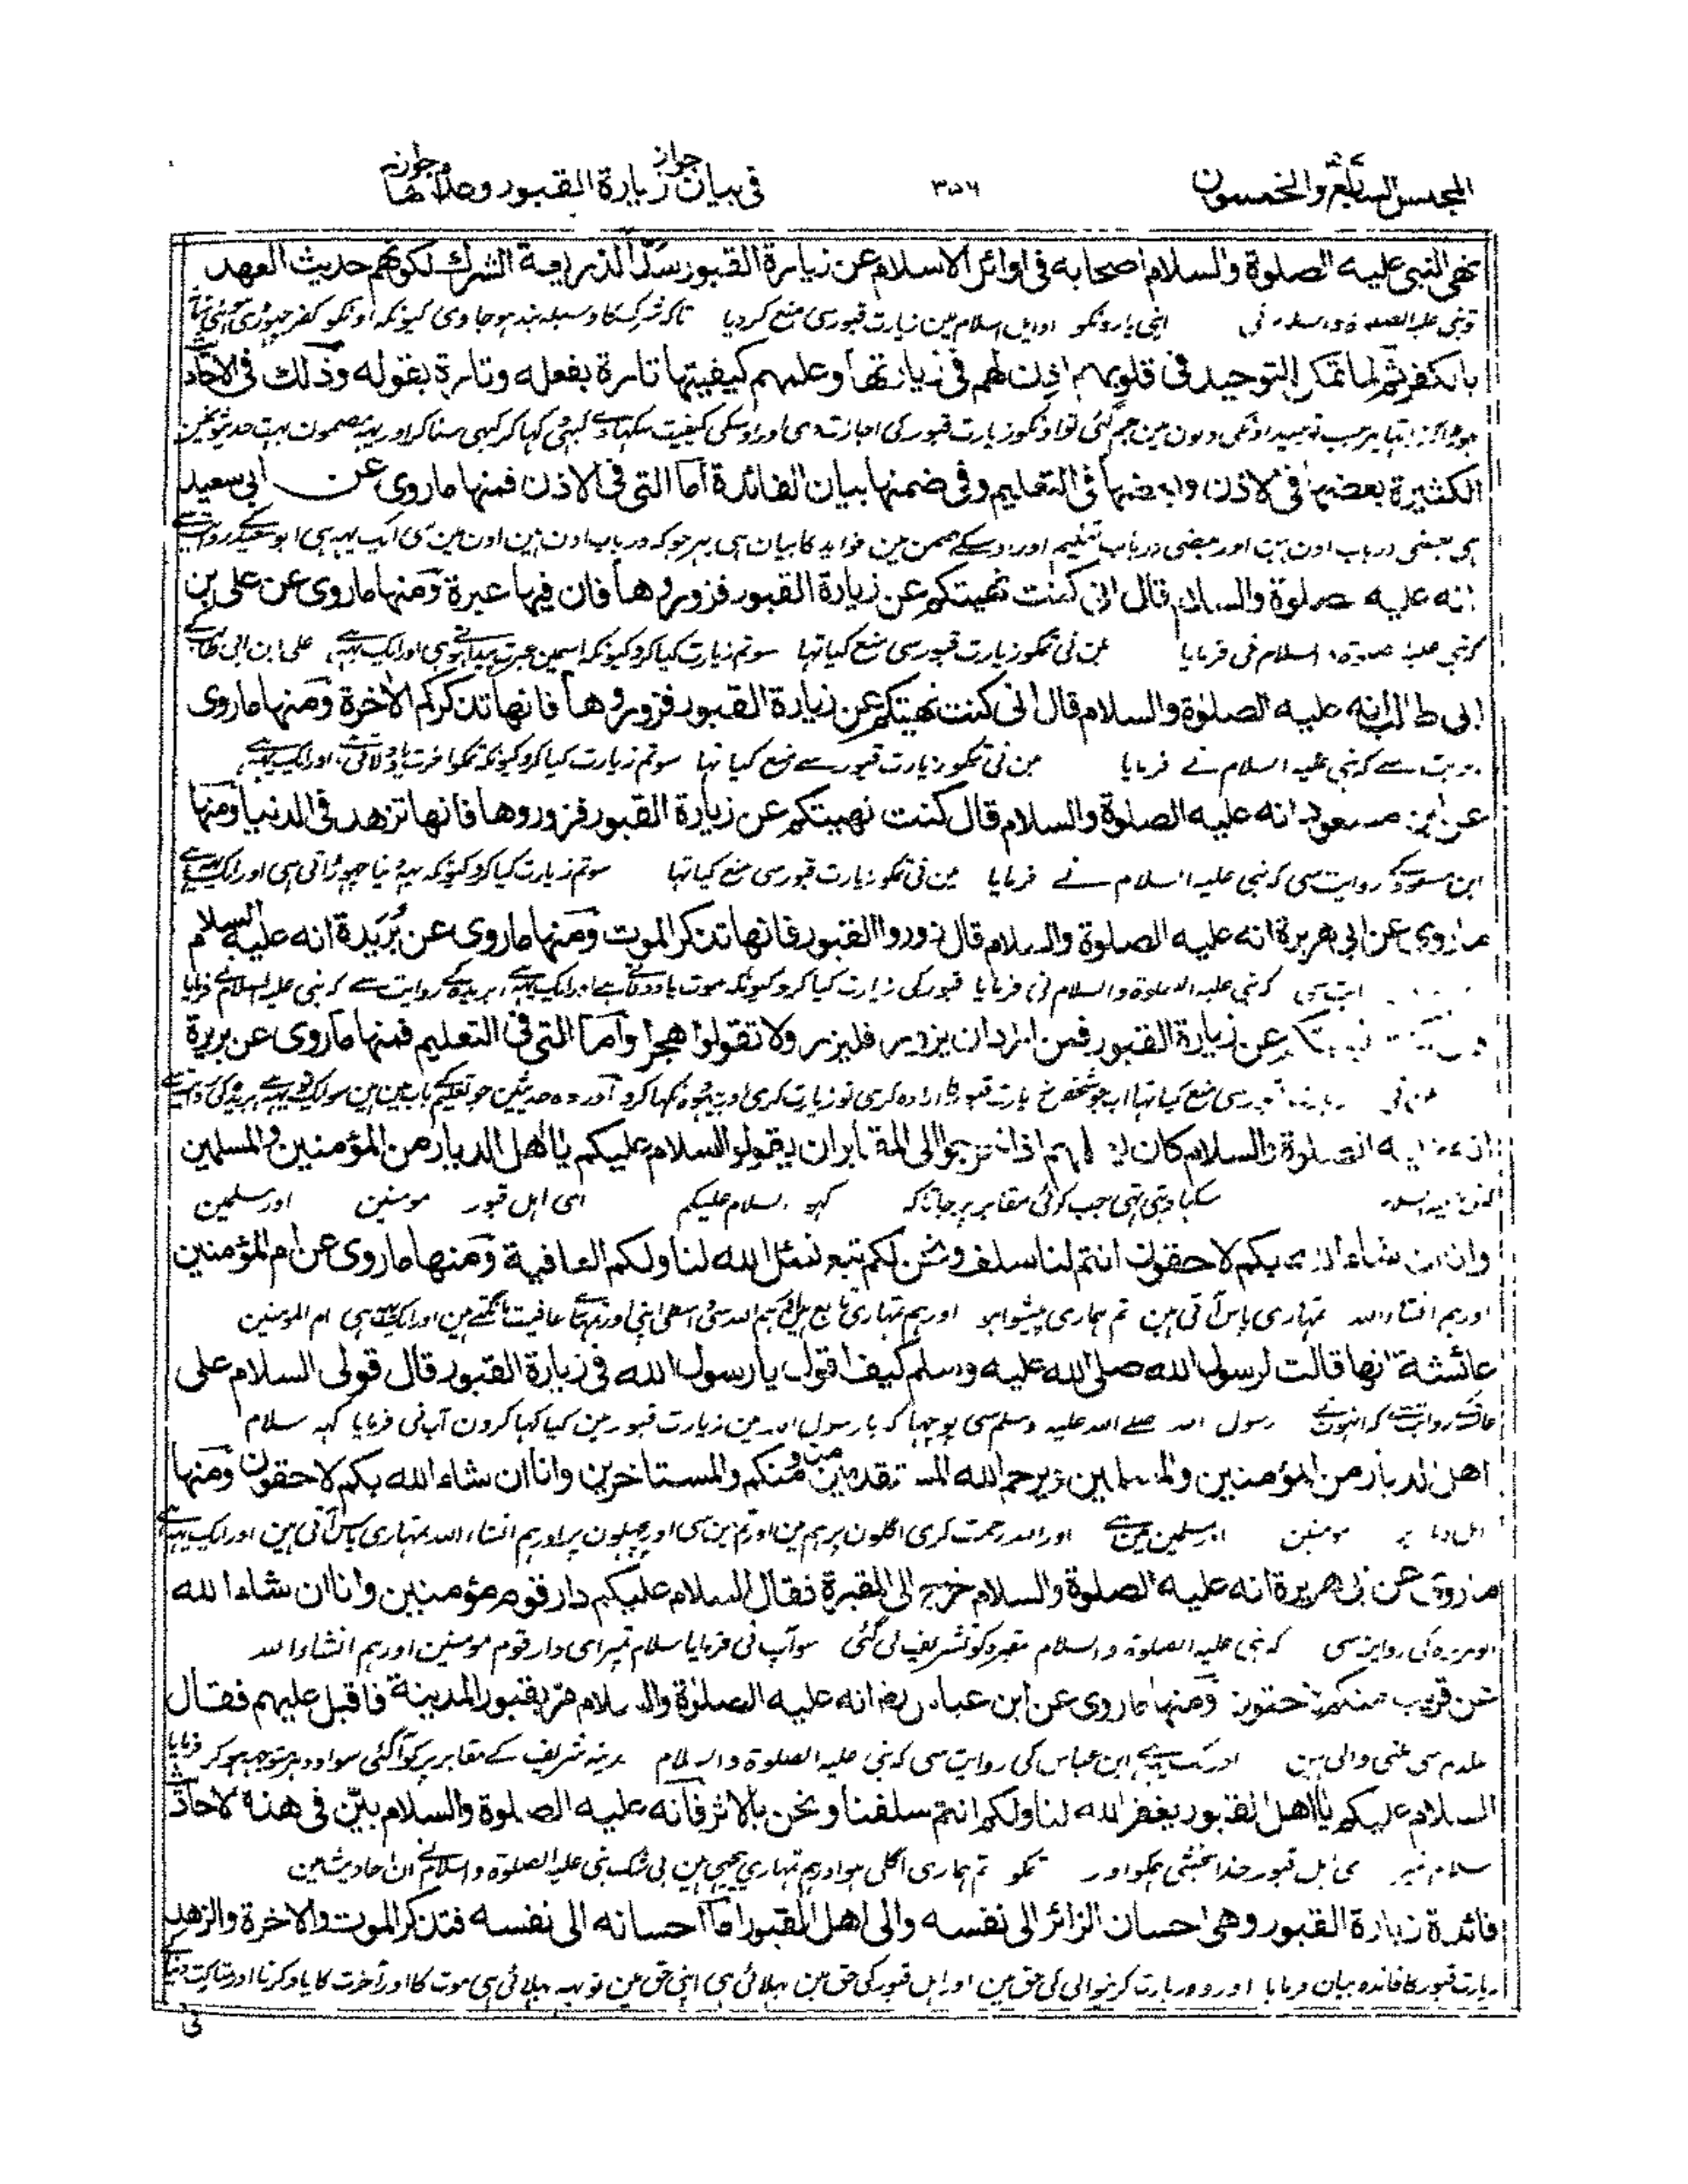 المجلس السابع والخمسون ٣٥٦ فى بيان جواز زيارة القبور وعدم جوازها
نهى النبى عليه الصلوة والسلام اصحابه فى اوائل الاسلام عن زيارة القبور سدًّا لذريعة الشرك لكونهم حديث العهد
نبى علیہ الصلوۃ والسلام نى اپنى يارونكو اوايل اسلام مين زيارت قبورسى منع كرديا تاكہ شرك كا وسيلہ بند ہو جاوى كيونكہ اونكو كفر چهوڑى
بالكفر ثم لما تمكن التوحيد فى قلوبهم اذن لهم فى زيارتها وعلمهم كيفيتها تارة بفعله وتارة بقوله وذلك فى الاحاديث
تو اونكو زيارت قبور كى اجازت دى اور اوسكى كيفيت سكہادى كبہى كہا كر كبہى سنا كر اور يہ مضمون بہت حديثونمين
الكثيرة بعضها فى الاذن وبعضها فى التعليم وفى ضمنها بيان الفائدة اما التى فى الاذن فمنها ما روى عن ابى سعيد
ہى بعضى درباب اذن ہين اور بعضى درباب تعليم اور اوسكے ضمن مين فوايد كا بيان ہى پہر جوكہ درباب اذن ہين اون مين سى ايك يہہ ہى ابو سعيد كے روايت ہے
انه عليه الصلوة والسلام قال انى كنت نهيتكم عن زيارة القبور فزوروها فان فيها عبرة ومنها ما روى عن على بن
كہ نبى عليہ الصلوۃ والسلام نى فرمايا مين نى تمكو زيارت قبورسى منع كيا تہا سو تم زيارت كيا كرو كيونكہ اسمين عبرت ہى اور ايك يہہ ہے على ابن ابى طالب
ابى طالب انه عليه الصلوة والسلام قال انى كنت نهيتكم عن زيارة القبور فزوروها فانها تذكركم الاخرة ومنها ما روى
روايت سے كہ نبى عليہ السلام نے فرمايا مين نى تمكو زيارت قبور سے منع كيا تہا سو تم زيارت كيا كرو كيونكہ تمكو اخرت ياد دلاتى اور ايك يہہ ہے
عن ابن مسعود انه عليه الصلوة والسلام قال كنت نهيتكم عن زيارة القبور فزوروها فانها تزهد فى الدنيا ومنها
ابن مسعود كے روايت سى كہ نبى عليہ السلام نے فرمايا مين نى تمكو زيارت قبورسى منع كيا تہا سو تم زيارت كيا كرو كيونكہ يہہ دنيا چهوڑاتى ہى اور ايك يہہ ہے
ما روى عن ابى هريرة انه عليه الصلوة والسلام قال زوروا القبور فانها تذكر الموت ومنها ما روى عن بُرَيدة انه عليه السلام
كہ نبى عليہ الصلوۃ والسلام نى فرمايا قبور كى زيارت كيا كرو كيونكہ موت ياد دلاتا ہے اور ايك يہہ ہے بريدہ كے روايت سے كہ نبى عليہ السلام نے فرمايا
عن زيارة القبور فمن اراد ان يزور فليزر ولا تقولوا هجرا واما التى فى التعليم فمنها ما روى عن بريدة
مين نى قبورسى منع كيا تہا اب جو شخص زيارت قبور كا ارادہ كرى تو زيارت كرى اور بيہودہ نكہا كرو اور وہ حديثين جو تعليم كى باب مين ہين سو ايك يہہ ہے بريدہ كى
انه عليه الصلوة والسلام كان يعلمهم اذا خرجوا الى المقابر ان يقولوا السلام عليكم يا اهل الديار من المؤمنين والمسلمين
سكہا ديتى تہى جب كوئى مقابر پر جاتا كہ كہو السلام عليكم اى اہل قبور مومنين اور مسلمين
وانا ان شاء الله بكم لاحقون انتم لنا سلف ونحن لكم تبع نسئل الله لنا ولكم العافية ومنها ما روى عن ام المؤمنين
اور ہم انشاء اللہ تمہارى پاس آتى ہين تم ہمارى پيشوا ہو اور ہم تمہارى تابع ہين ہم اللہ سى واسطى اپنى اور تمہارے عافيت مانگتے ہين اور ايك يہہ ہى ام المومنين
عائشة انها قالت لرسول الله صلى الله عليه وسلم كيف اقول يا رسول الله فى زيارة القبور قال قولى السلام على
عائشہ كے روايت ہے كہ انہوں نے رسول اللہ صلے اللہ عليہ وسلم سى پوچہا كہ يا رسول اللہ مين زيارت قبور مين كيا كہا كرون آپ نى فرمايا كہہ سلام
اهل الديار من المؤمنين والمسلمين ويرحم الله المستقدمين منا ومنكم والمستاخرين وانا ان شاء الله بكم لاحقون ومنها
اہل ديار پر مومنين اور مسلمين مين سے اور اللہ رحمت كرى اگلون پر ہم مين اور تم مين سى اور پچہلون پر اور ہم انشاء اللہ تمہارى پاس آتى ہين اور ايك يہہ ہے
ما روى عن ابى هريرة انه عليه الصلوة والسلام خرج الى المقبرة فقال السلام عليكم دار قوم مؤمنين وانا ان شاء الله
ابو ہريرہ كى روايت سى كہ نبى عليہ الصلوۃ والسلام مقبرہ كو تشريف لى گئى سو آپ نى فرمايا سلام تمپر اى دار قوم مومنين اور ہم انشاء اللہ
عن قريب منكم لاحقون ومنها ما روى عن ابن عباس رض انه عليه الصلوة والسلام مر بقبور المدينة فاقبل عليهم فقال
جلد تم سى ملنى والى ہين اور ايك يہہ ہے ابن عباس كى روايت سى كہ نبى عليہ الصلوۃ والسلام مدينہ شريف كے مقابر پر كو آگئى سو اودہر متوجہ ہو كر فرمايا
السلام عليكم يا اهل القبور يغفر الله لنا ولكم انتم سلفنا ونحن بالاثر فانه عليه الصلوة والسلام بيّن فى هذه الاحاديث
سلام تمپر اى اہل قبور خدا بخشى ہمكو اور تمكو تم ہمارى اگلى ہو اور ہم تمہارى پيچہى ہين بى شك نبى عليہ الصلوۃ والسلام نے ان احاديث مين
فائدة زيارة القبور وهى احسان الزائر الى نفسه والى اهل القبور اما احسانه الى نفسه فتذكر الموت والاخرة والزهد
زيارت قبور كا فائدہ بيان فرمايا اور وہ زيارت كرنيوالى كى حق مين اور اہل قبور كى حق مين بہلائى ہى اپنى حق مين تو يہہ بہلائى ہى موت كا اور آخرت كا ياد كرنا اور
فى